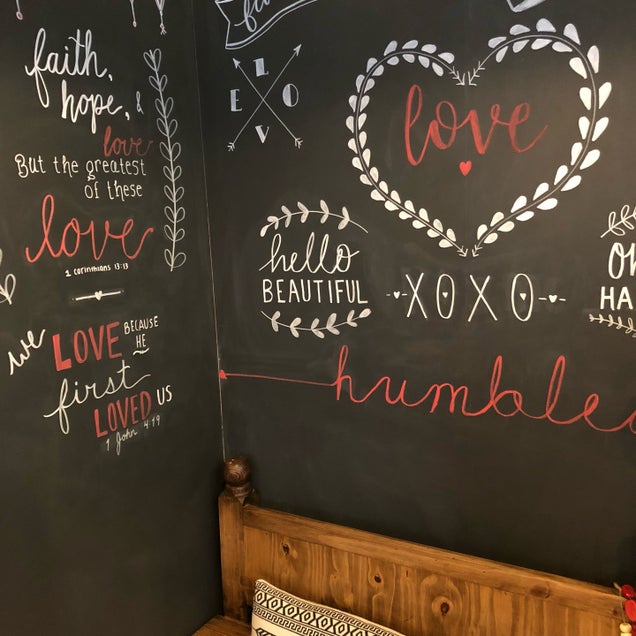 faith,
hope, &
love
But the greatest
of these
love
1 corinthians 13:13
we LOVE BECAUSE
HE
first
LOVED US
1 John 4:19
L
E O
V
love
hello
BEAUTIFUL
XOXO
HA
humble